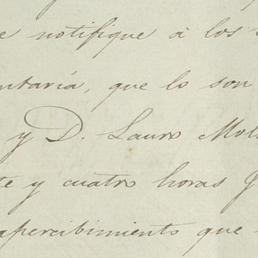 e notifique á los
ntaría, que lo son
y D. Lauro Mol
te y cuatro horas
apercibimiento que